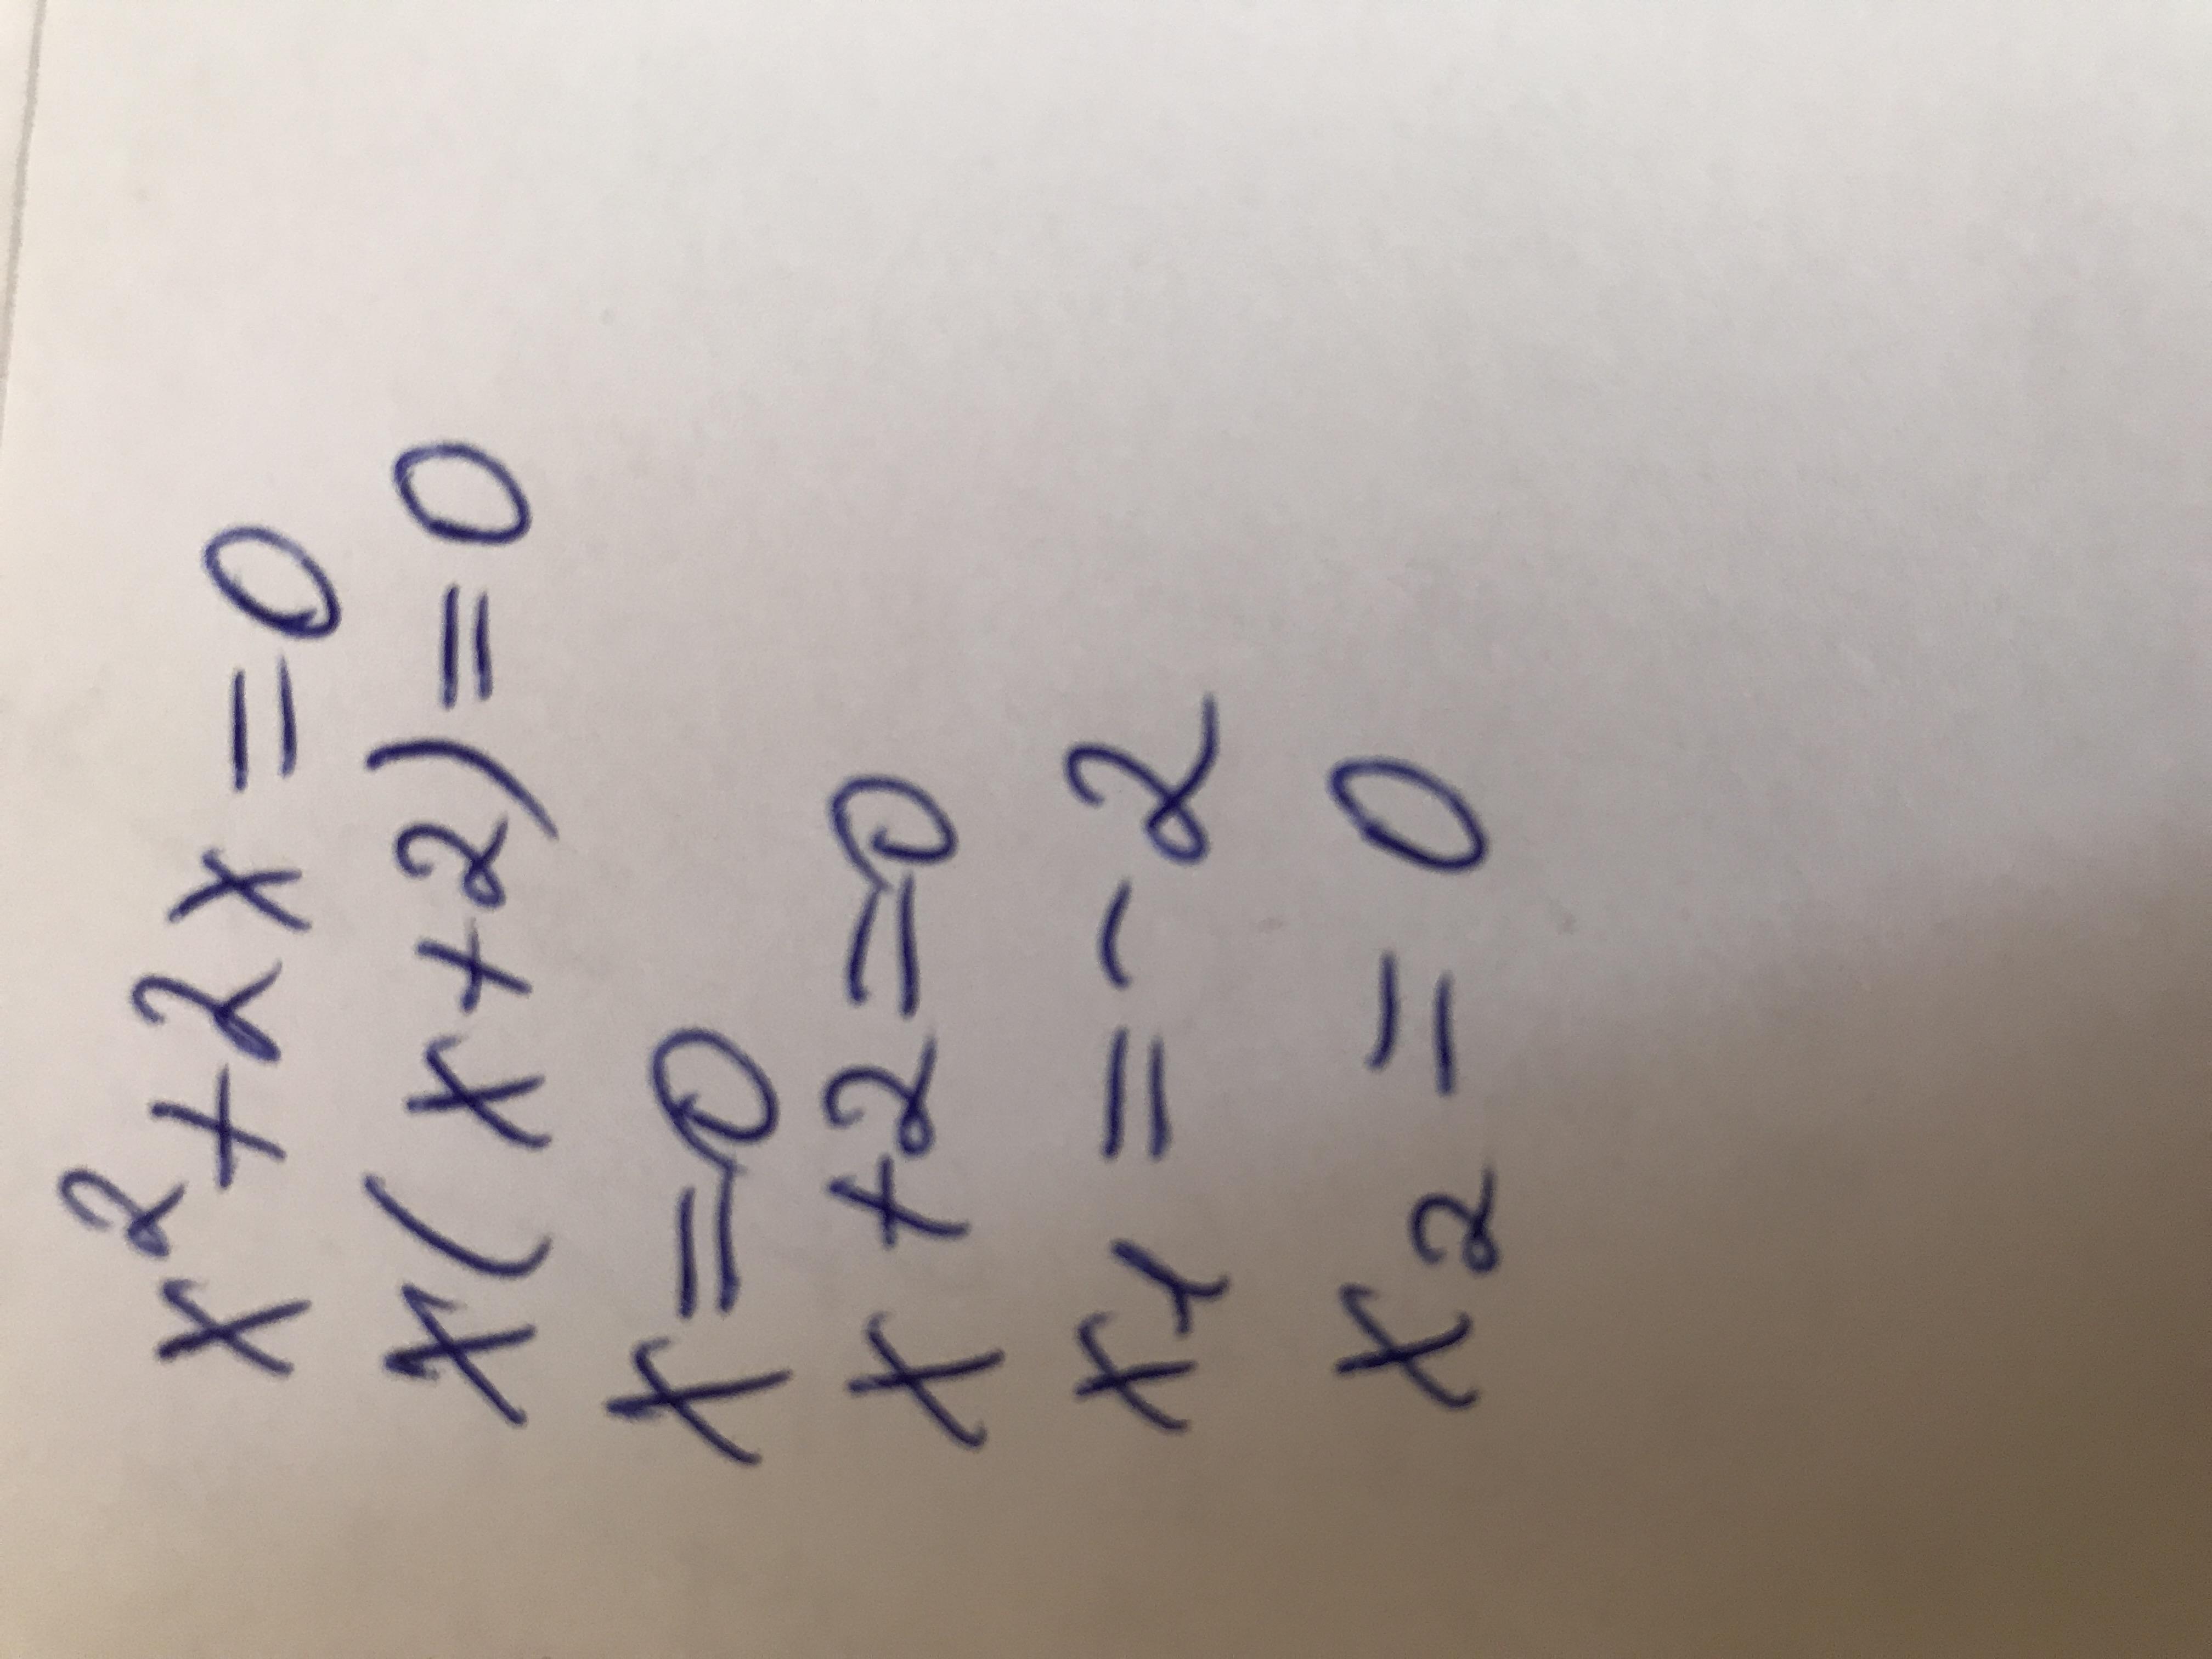 x²+2x=0
x(x+2)=0
x=0
x+2=0
x₁=-2
x₂=0